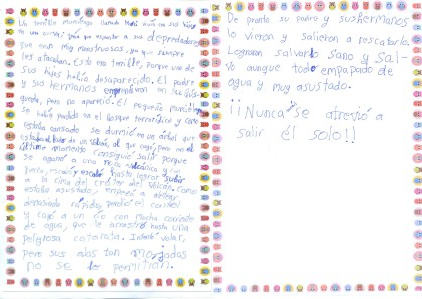 Un murciélago llamado vivía con sus hijos
en una cueva, para que espantar a sus depredadores
que eran muy monstruosos, ya que siempre
les atacaban. Esto era terrible, porque uno de
sus hijos había desaparecido. El padre
y sus hermanos empezaron en su bús-
queda, pero no apareció. El pequeño murciélago
se había perdido en el bosque terrorífico y como
estaba cansado se durmió en un árbol que
estaba al borde de un volcán, al que cayó, pero en el
último momento consiguió salir porque
se agarró a una roca volcánica y
escaló hasta lograr subir
a la cima del cráter del volcán. Como
estaba asustado, empezó a aletear
demasiado rápido, perdió el control
y cayó a un río con mucha corriente
de agua, que le arrastró hasta una
peligrosa catarata. Intentó volar,
pero sus alas tan mojadas
no se lo permitían.
De pronto su padre y sus hermanos
lo vieron y salieron a rescatarlo.
Lograron salvarlo sano y sal-
vo aunque todo empapado de
agua y muy asustado.
¡¡Nunca se atrevió a
salir él solo!!